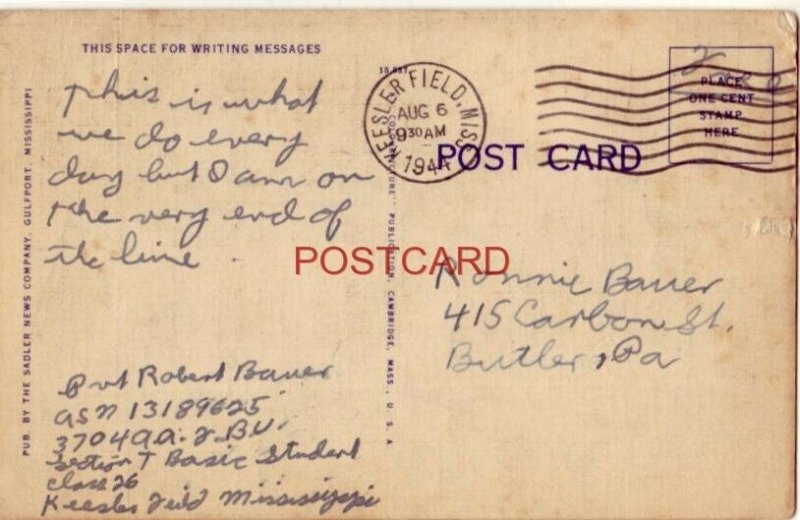 THIS SPACE FOR WRITING MESSAGES
This is what
we do every
day but I am on
the very end of
the line.
Pvt Robert Bauer
ASN 13189625
3704 A.A.F.B.U.
Section T Basic Student
Class 26
Keesler Feild Mississippi
PUB. BY THE SADLER NEWS COMPANY, GULFPORT, MISSISSIPPI
PUBLICATION, CAMBRIDGE, MASS., U. S. A.
KEESLER FIELD, MISS.
AUG 6
930 AM
1944
POST CARD
PLACE
ONE CENT
STAMP
HERE
POSTCARD
Ronnie Bauer
415 Carbon St.
Butler, Pa